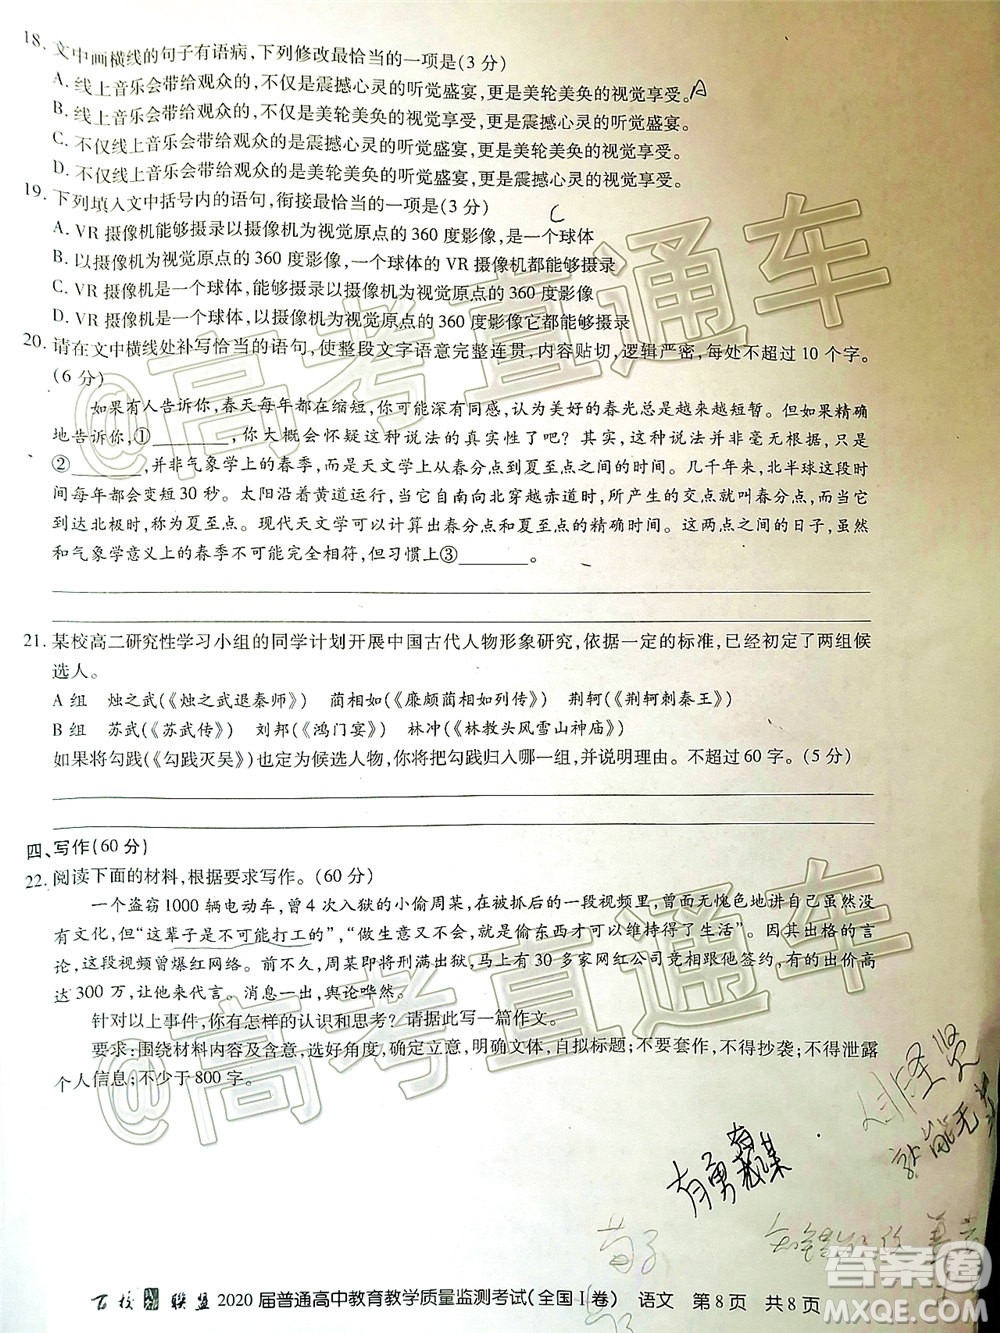 18. 文中画横线的句子有语病,下列修改最恰当的一项是(3 分)
A. 线上音乐会带给观众的,不仅是震撼心灵的听觉盛宴,更是美轮美奂的视觉享受。A
B. 线上音乐会带给观众的,不仅是美轮美奂的视觉享受,更是震撼心灵的听觉盛宴。
C. 不仅线上音乐会带给观众的是震撼心灵的听觉盛宴,更是美轮美奂的视觉享受。
D. 不仅线上音乐会带给观众的是美轮美奂的听觉盛宴,更是震撼心灵的视觉享受。
19. 下列填入文中括号内的语句,衔接最恰当的一项是(3 分)
C
A. VR 摄像机能够摄录以摄像机为视觉原点的 360 度影像,是一个球体
B. 以摄像机为视觉原点的 360 度影像,一个球体的 VR 摄像机都能够摄录
C. VR 摄像机是一个球体,能够摄录以摄像机为视觉原点的 360 度影像
D. VR 摄像机是一个球体,以摄像机为视觉原点的 360 度影像它都能够摄录
20. 请在文中横线处补写恰当的语句,使整段文字语意完整连贯,内容贴切,逻辑严密,每处不超过 10 个字。
(6 分)
如果有人告诉你,春天每年都在缩短,你可能深有同感,认为美好的春光总是越来越短暂。如果精确
地告诉你,①________,你大概会怀疑这种说法的真实性了吧?其实,这种说法并非毫无根据,只是
②________,并非气象学上的春季,而是天文学上的春分点到夏至点之间的时间。几千年来,北半球这段时
间每年都会变短 30 秒。太阳沿着黄道运行,当它自南向北穿越赤道时,所产生的交点就叫春分点,而当它
到达北极时,称为夏至点。现代天文学可以计算出春分点和夏至点的精确时间。这两点之间的日子,虽然
和气象学意义上的春季不可能完全相符,但习惯上③________。
21. 某校高二研究性学习小组的同学计划开展中国古代人物形象研究,依据一定的标准,已经初定了两组候
选人。
A 组 烛之武(《烛之武退秦师》) 蔺相如(《廉颇蔺相如列传》) 荆轲(《荆轲刺秦王》)
B 组 苏武(《苏武传》) 刘邦(《鸿门宴》) 林冲(《林教头风雪山神庙》)
如果将勾践(《勾践灭吴》)也定为候选人物,你将勾践归入哪一组,并说明理由。不超过 60 字。(5 分)
四、写作(60 分)
22. 阅读下面的材料,根据要求写作。(60 分)
一个盗窃 1000 辆电动车,曾 4 次入狱的小偷周某,在被抓后的一段视频里,曾面无愧色地讲自己虽然没
有文化,但“这辈子是不可能打工的”,“做生意又不会,就是偷东西才可以维持得了生活”。因其出格的言
论,这段视频曾爆红网络。前不久,周某即将刑满出狱,马上有 30 多家网红公司竞相跟他签约,有的出价高
达 300 万,让他来代言。消息一出,舆论哗然。
针对以上事件,你有怎样的认识和思考?请据此写一篇作文。
要求:围绕材料内容及含意,选好角度,确定立意,明确文体,自拟标题;不要套作,不得抄袭;不得泄露
个人信息;不少于 800 字。
@高考直通车
@高考直通车
人非圣贤
孰能无
有勇有谋
荀子
答案圈
MXQE.COM
百校联盟 2020 届普通高中教育教学质量监测考试(全国Ⅰ卷) 语文 第 8 页 共 8 页